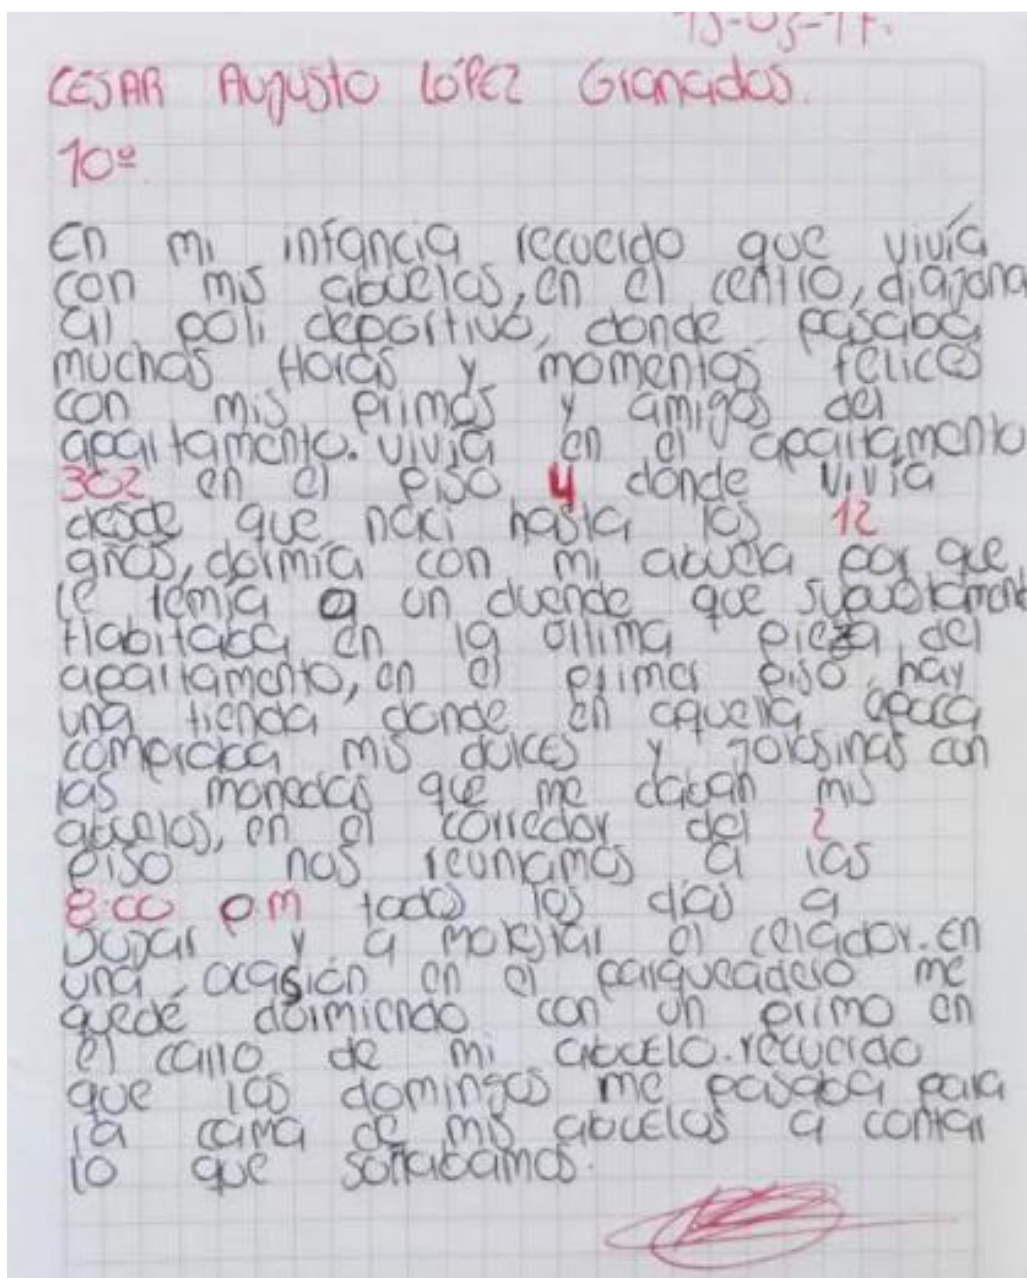 CESAR Augusto López Granados.
10º
En mi infancia recuerdo que vivía
con mis abuelos, en el centro, diagona
al poli deportivo, donde pasaba
muchas Horas y momentos felices
con mis primos y amigos del
apartamento. vivía en el apartamento
302 en el piso 4 donde vivía
desde que naci hasta los 12
años, dormía con mi abuela por que
le temía a un duende que supuestament
Habitaba en la última pieza del
apartamento, en el primer piso hay
una tienda donde en aquella época
compraba mis dulces y golosinas con
las monedas que me daban mis
abuelos, en el corredor del 2
piso nos reuníamos a las
8:00 p.m todos los días a
Jugar y a molestar al celador. En
una ocasión en el parqueadero me
quedé dormiendo con un primo en
el carro de mi abuelo. recuerdo
que los domingos me pasaba para
la cama de mis abuelos a contar
lo que soñabamos.